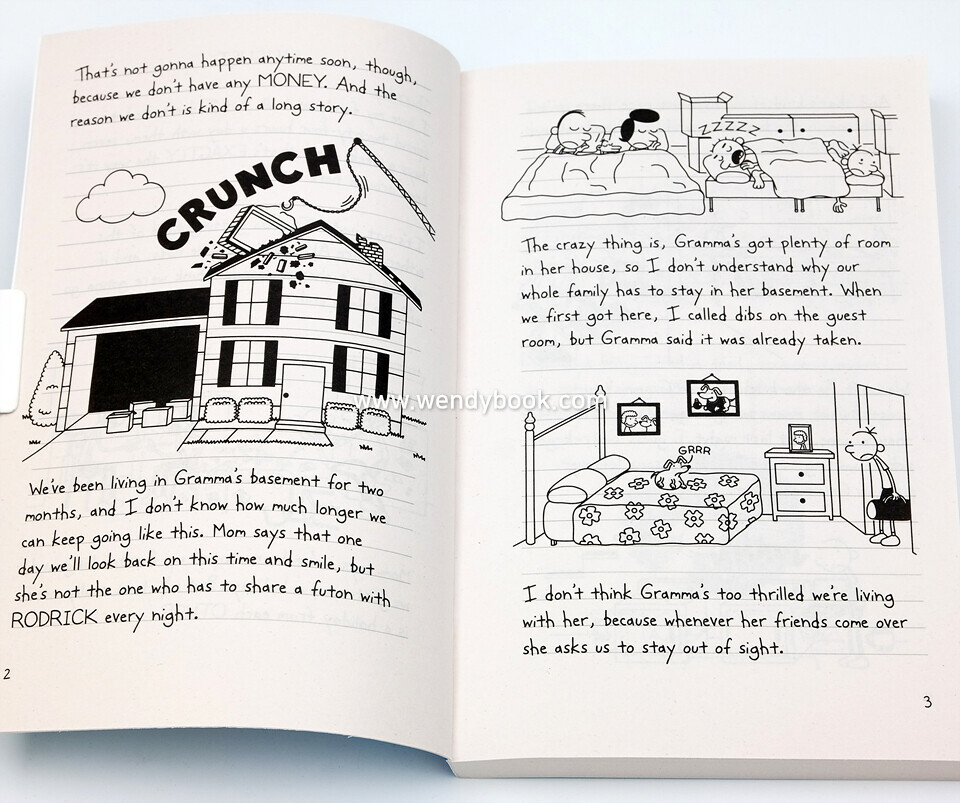 That's not gonna happen anytime soon, though,
because we don't have any MONEY. And the
reason we don't is kind of a long story.
CRUNCH
We've been living in Gramma's basement for two
months, and I don't know how much longer we
can keep going like this. Mom says that one
day we'll look back on this time and smile, but
she's not the one who has to share a futon with
RODRICK every night.
2
ZZZZZ
The crazy thing is, Gramma's got plenty of room
in her house, so I don't understand why our
whole family has to stay in her basement. When
we first got here, I called dibs on the guest
room, but Gramma said it was already taken.
www.wendybook.com
GRRR
I don't think Gramma's too thrilled we're living
with her, because whenever her friends come over
she asks us to stay out of sight.
3